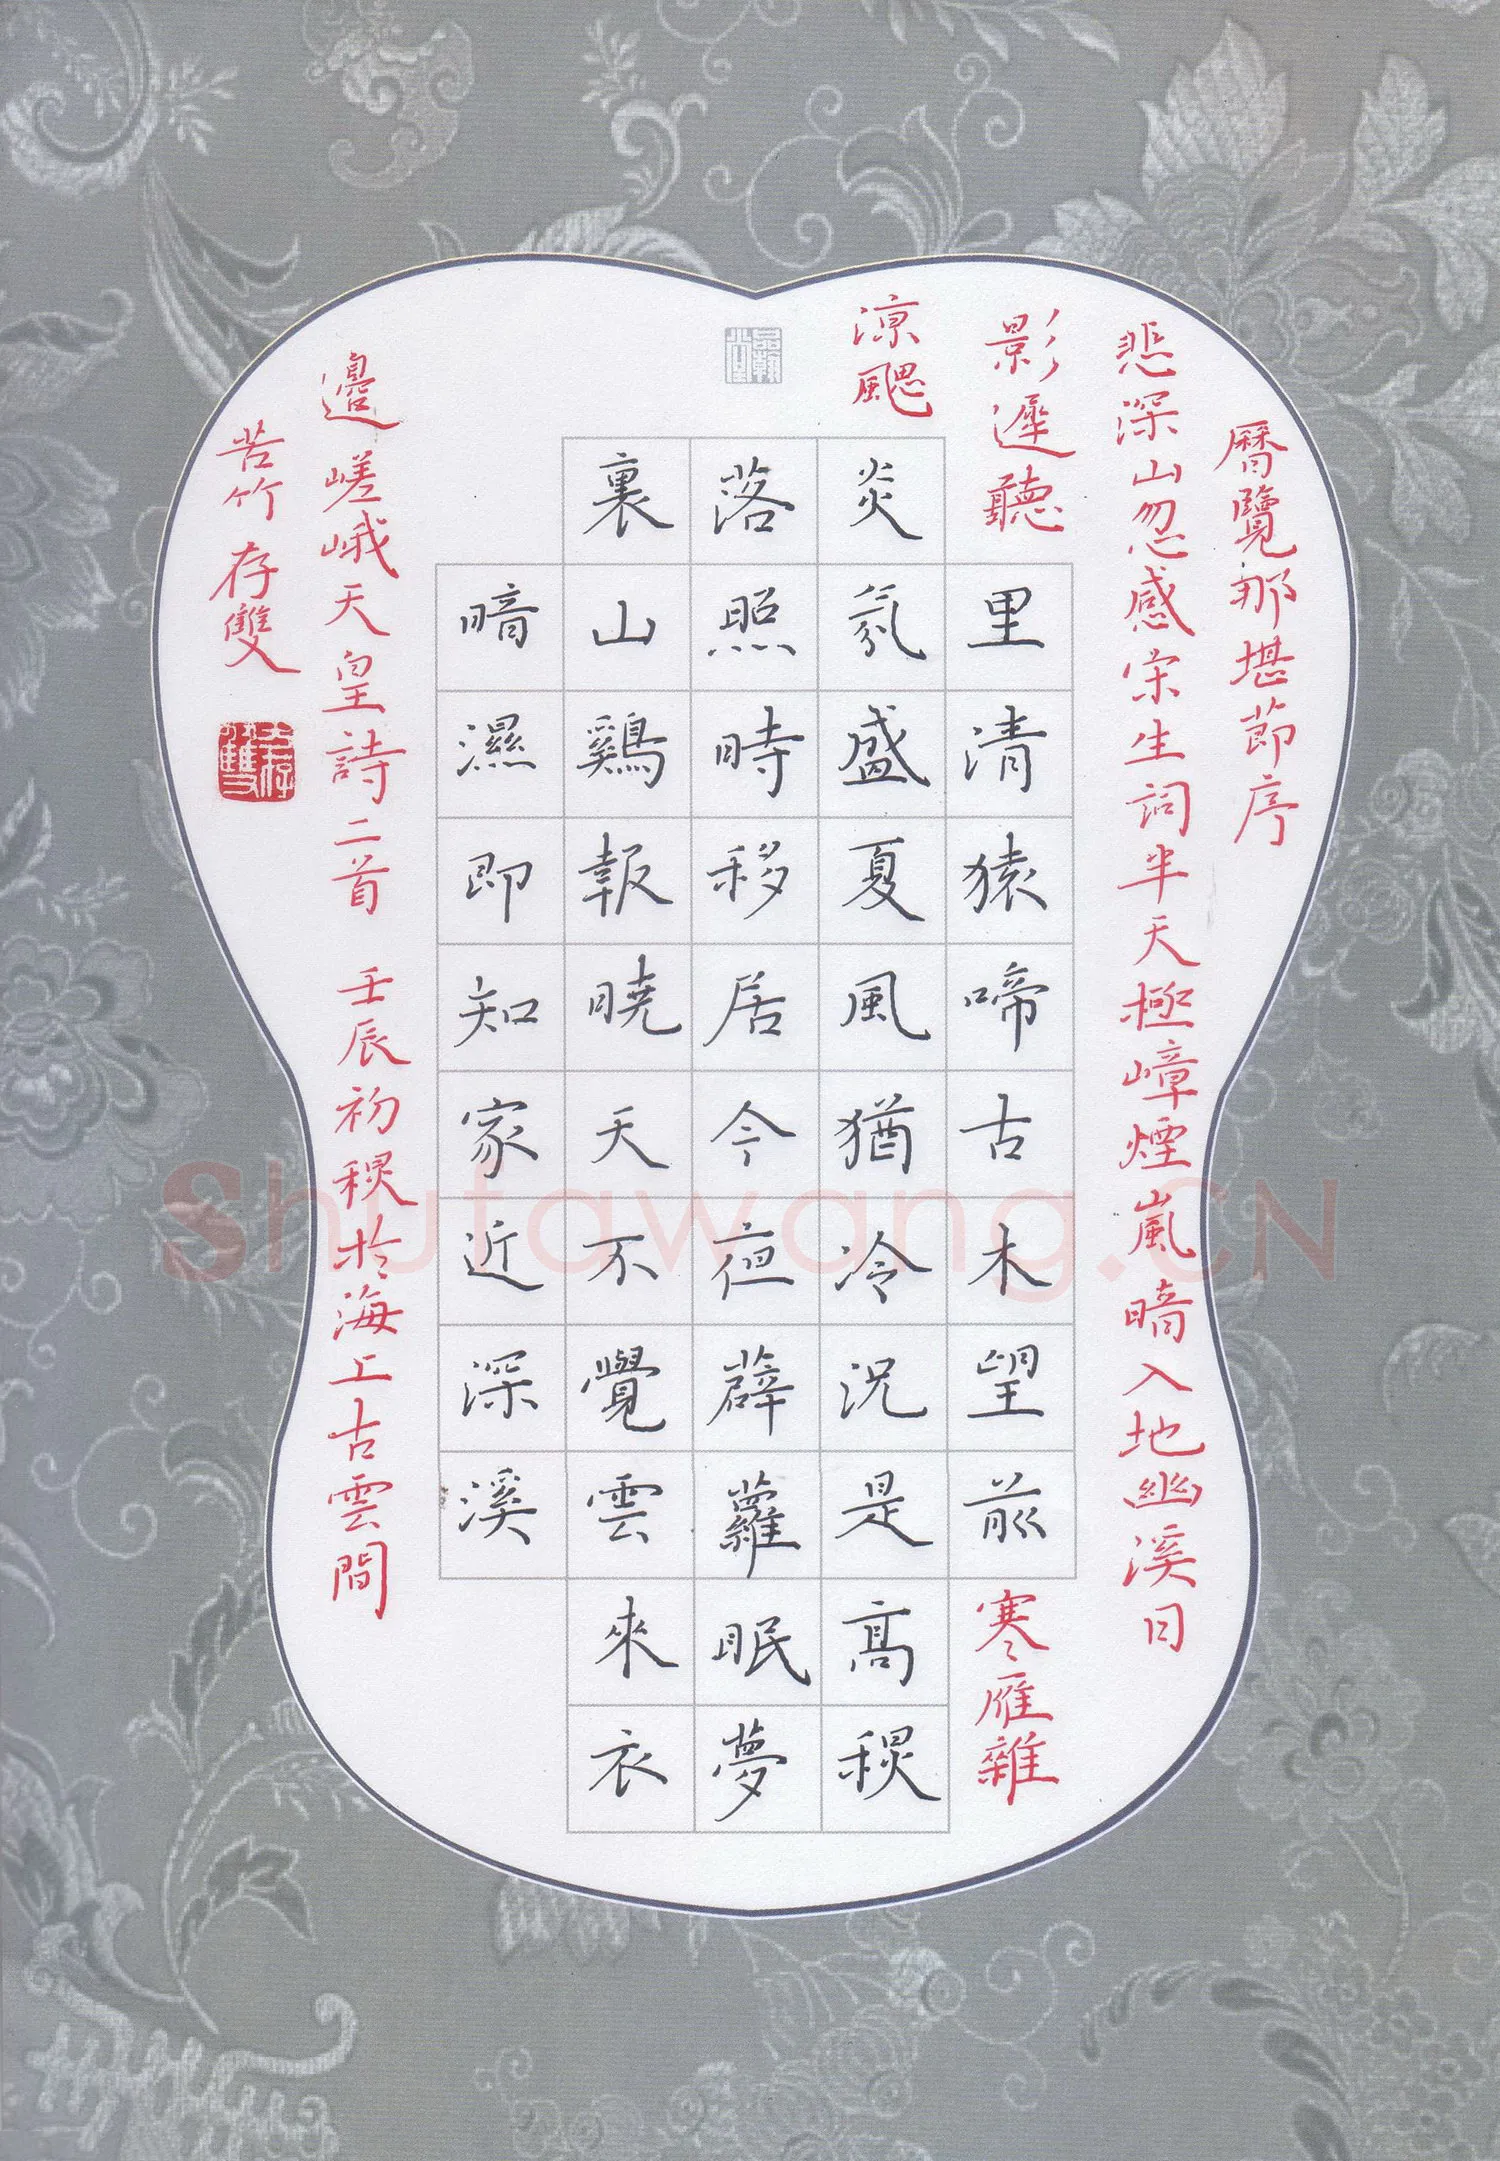 曆覽那堪節序
悲深山忽感宋生詞半天極嶂煙嵐暗入地幽溪日
影遲聽里清猿啼古木望前寒雁雜
涼颸炎氛盛夏風猶冷況是高秋
落照時移居今夜薜蘿眠夢
裏山鷄報曉天不覺雲來衣
暗濕即知家近深溪
邊嵯峨天皇詩二首 壬辰初秋於海上古雲間
苦竹 存雙
存雙
品翰堂
Shutawang.CN